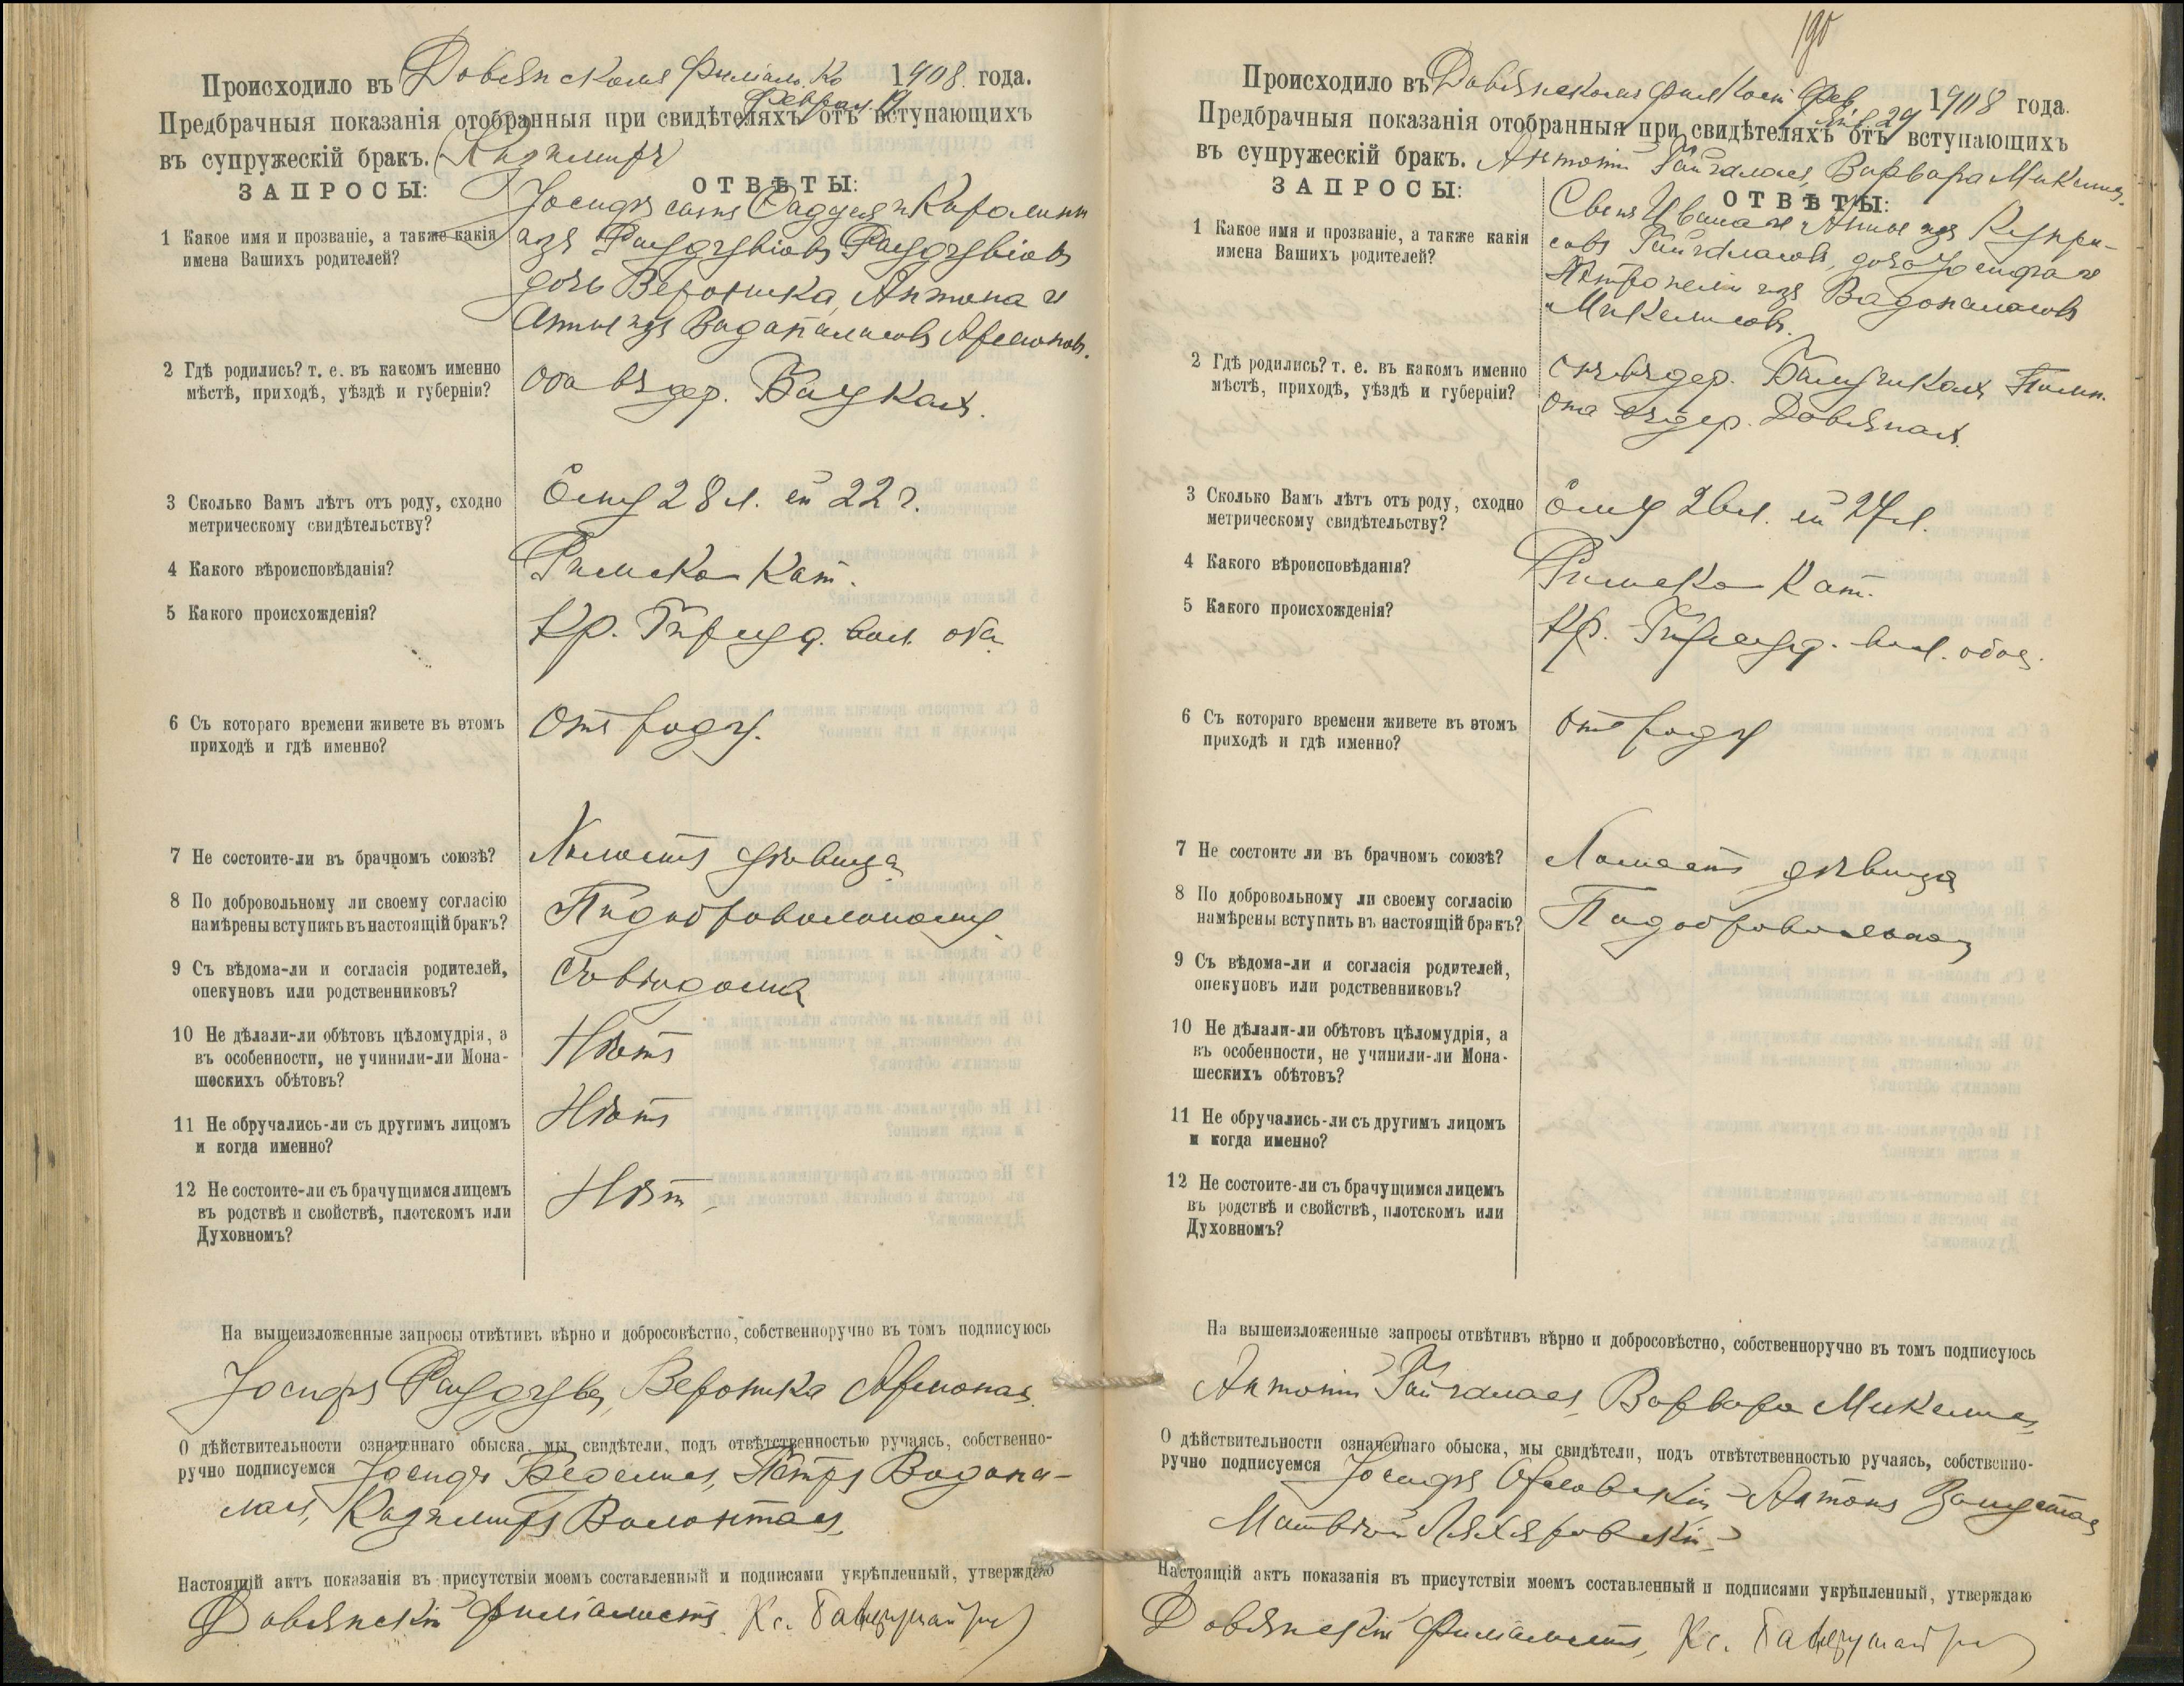 Происходило въ Довянскомъ Филіал. Ко 1908 года.
Феврал. 19
Предбрачныя показанія отобранныя при свидѣтеляхъ отъ вступающихъ
въ супружескій бракъ.
ЗАПРОСЫ:
ОТВѢТЫ:
1 Какое имя и прозваніе, а также какія
имена Вашихъ родителей?
Іосифъ сынъ Фаддея и Каролины
изъ
дочь Вероника, Антона и
Анны изъ Вадапаласовъ
2 Гдѣ родились? т. е. въ какомъ именно
мѣстѣ, приходѣ, уѣздѣ и губерніи?
оба въ дер.
3 Сколько Вамъ лѣтъ отъ роду, сходно
метрическому свидѣтельству?
ему 28 л. ей 22 г.
4 Какого вѣроисповѣданія?
Римско Кат.
5 Какого происхожденія?
Кр. вол. оба
6 Съ котораго времени живете въ этомъ
приходѣ и гдѣ именно?
Отъ роду.
7 Не состоите-ли въ брачномъ союзѣ?
Холостъ дѣвица
8 По добровольному ли своему согласію
намѣрены вступить въ настоящій бракъ?
По добровольному
9 Съ вѣдома-ли и согласія родителей,
опекуновъ или родственниковъ?
Съ вѣдома
10 Не дѣлали-ли обѣтовъ цѣломудрія, а
въ особенности, не учинили-ли Мона-
шескихъ обѣтовъ?
Нѣтъ
11 Не обручались-ли съ другимъ лицомъ
и когда именно?
Нѣтъ
12 Не состоите-ли съ брачущимся лицемъ
въ родствѣ и свойствѣ, плотскомъ или
Духовномъ?
Нѣтъ
На вышеизложенные запросы отвѣтивъ вѣрно и добросовѣстно, собственноручно въ томъ подписуюсь
Іосифъ Вероника
О дѣйствительности означеннаго обыска, мы свидѣтели, подъ отвѣтственностью ручаясь, собственно-
ручно подписуемся Іосифъ Петръ Вадапа-
ласъ, Казимиръ Валонтасъ
Настоящій актъ показанія въ присутствіи моемъ составленный и подписами укрѣпленный, утверждаю
Довянскій Филіалистъ Кс.
190
Происходило въ Довянскомъ Фил Кост Фев. 1908 года.
Предбрачныя показанія отобранныя при свидѣтеляхъ отъ вступающихъ
въ супружескій бракъ. Антоній Гайгаласъ, Варвара
ЗАПРОСЫ:
ОТВѢТЫ:
1 Какое имя и прозваніе, а также какія
имена Вашихъ родителей?
Ивана и Анны изъ
Гайгаласовъ, дочь Іосифа и
Петронели изъ Вадопаласовъ
2 Гдѣ родились? т. е. въ какомъ именно
мѣстѣ, приходѣ, уѣздѣ и губерніи?
онъ въ дер.
она въ дер. Довянахъ
3 Сколько Вамъ лѣтъ отъ роду, сходно
метрическому свидѣтельству?
ему 26 л. ей
4 Какого вѣроисповѣданія?
Римско Кат.
5 Какого происхожденія?
Кр. вол. обое.
6 Съ котораго времени живете въ этомъ
приходѣ и гдѣ именно?
Отъ роду
7 Не состоите ли въ брачномъ союзѣ?
Холостъ дѣвица
8 По добровольному ли своему согласію
намѣрены вступить въ настоящій бракъ?
По добровольному
9 Съ вѣдома-ли и согласія родителей,
опекуновъ или родственниковъ?
10 Не дѣлали-ли обѣтовъ цѣломудрія, а
въ особенности, не учинили-ли Мона-
шескихъ обѣтовъ?
11 Не обручались-ли съ другимъ лицомъ
и когда именно?
12 Не состоите-ли съ брачущимся лицемъ
въ родствѣ и свойствѣ, плотскомъ или
Духовномъ?
На вышеизложенные запросы отвѣтивъ вѣрно и добросовѣстно, собственноручно въ томъ подписуюсь
Антоній Гайгаласъ, Варвара
О дѣйствительности означеннаго обыска, мы свидѣтели, подъ отвѣтственностью ручаясь, собственно-
ручно подписуемся Іосифъ Антонъ
Матвѣй
Настоящій актъ показанія въ присутствіи моемъ составленный и подписами укрѣпленный, утверждаю
Довянскій Филіалистъ, Кс.